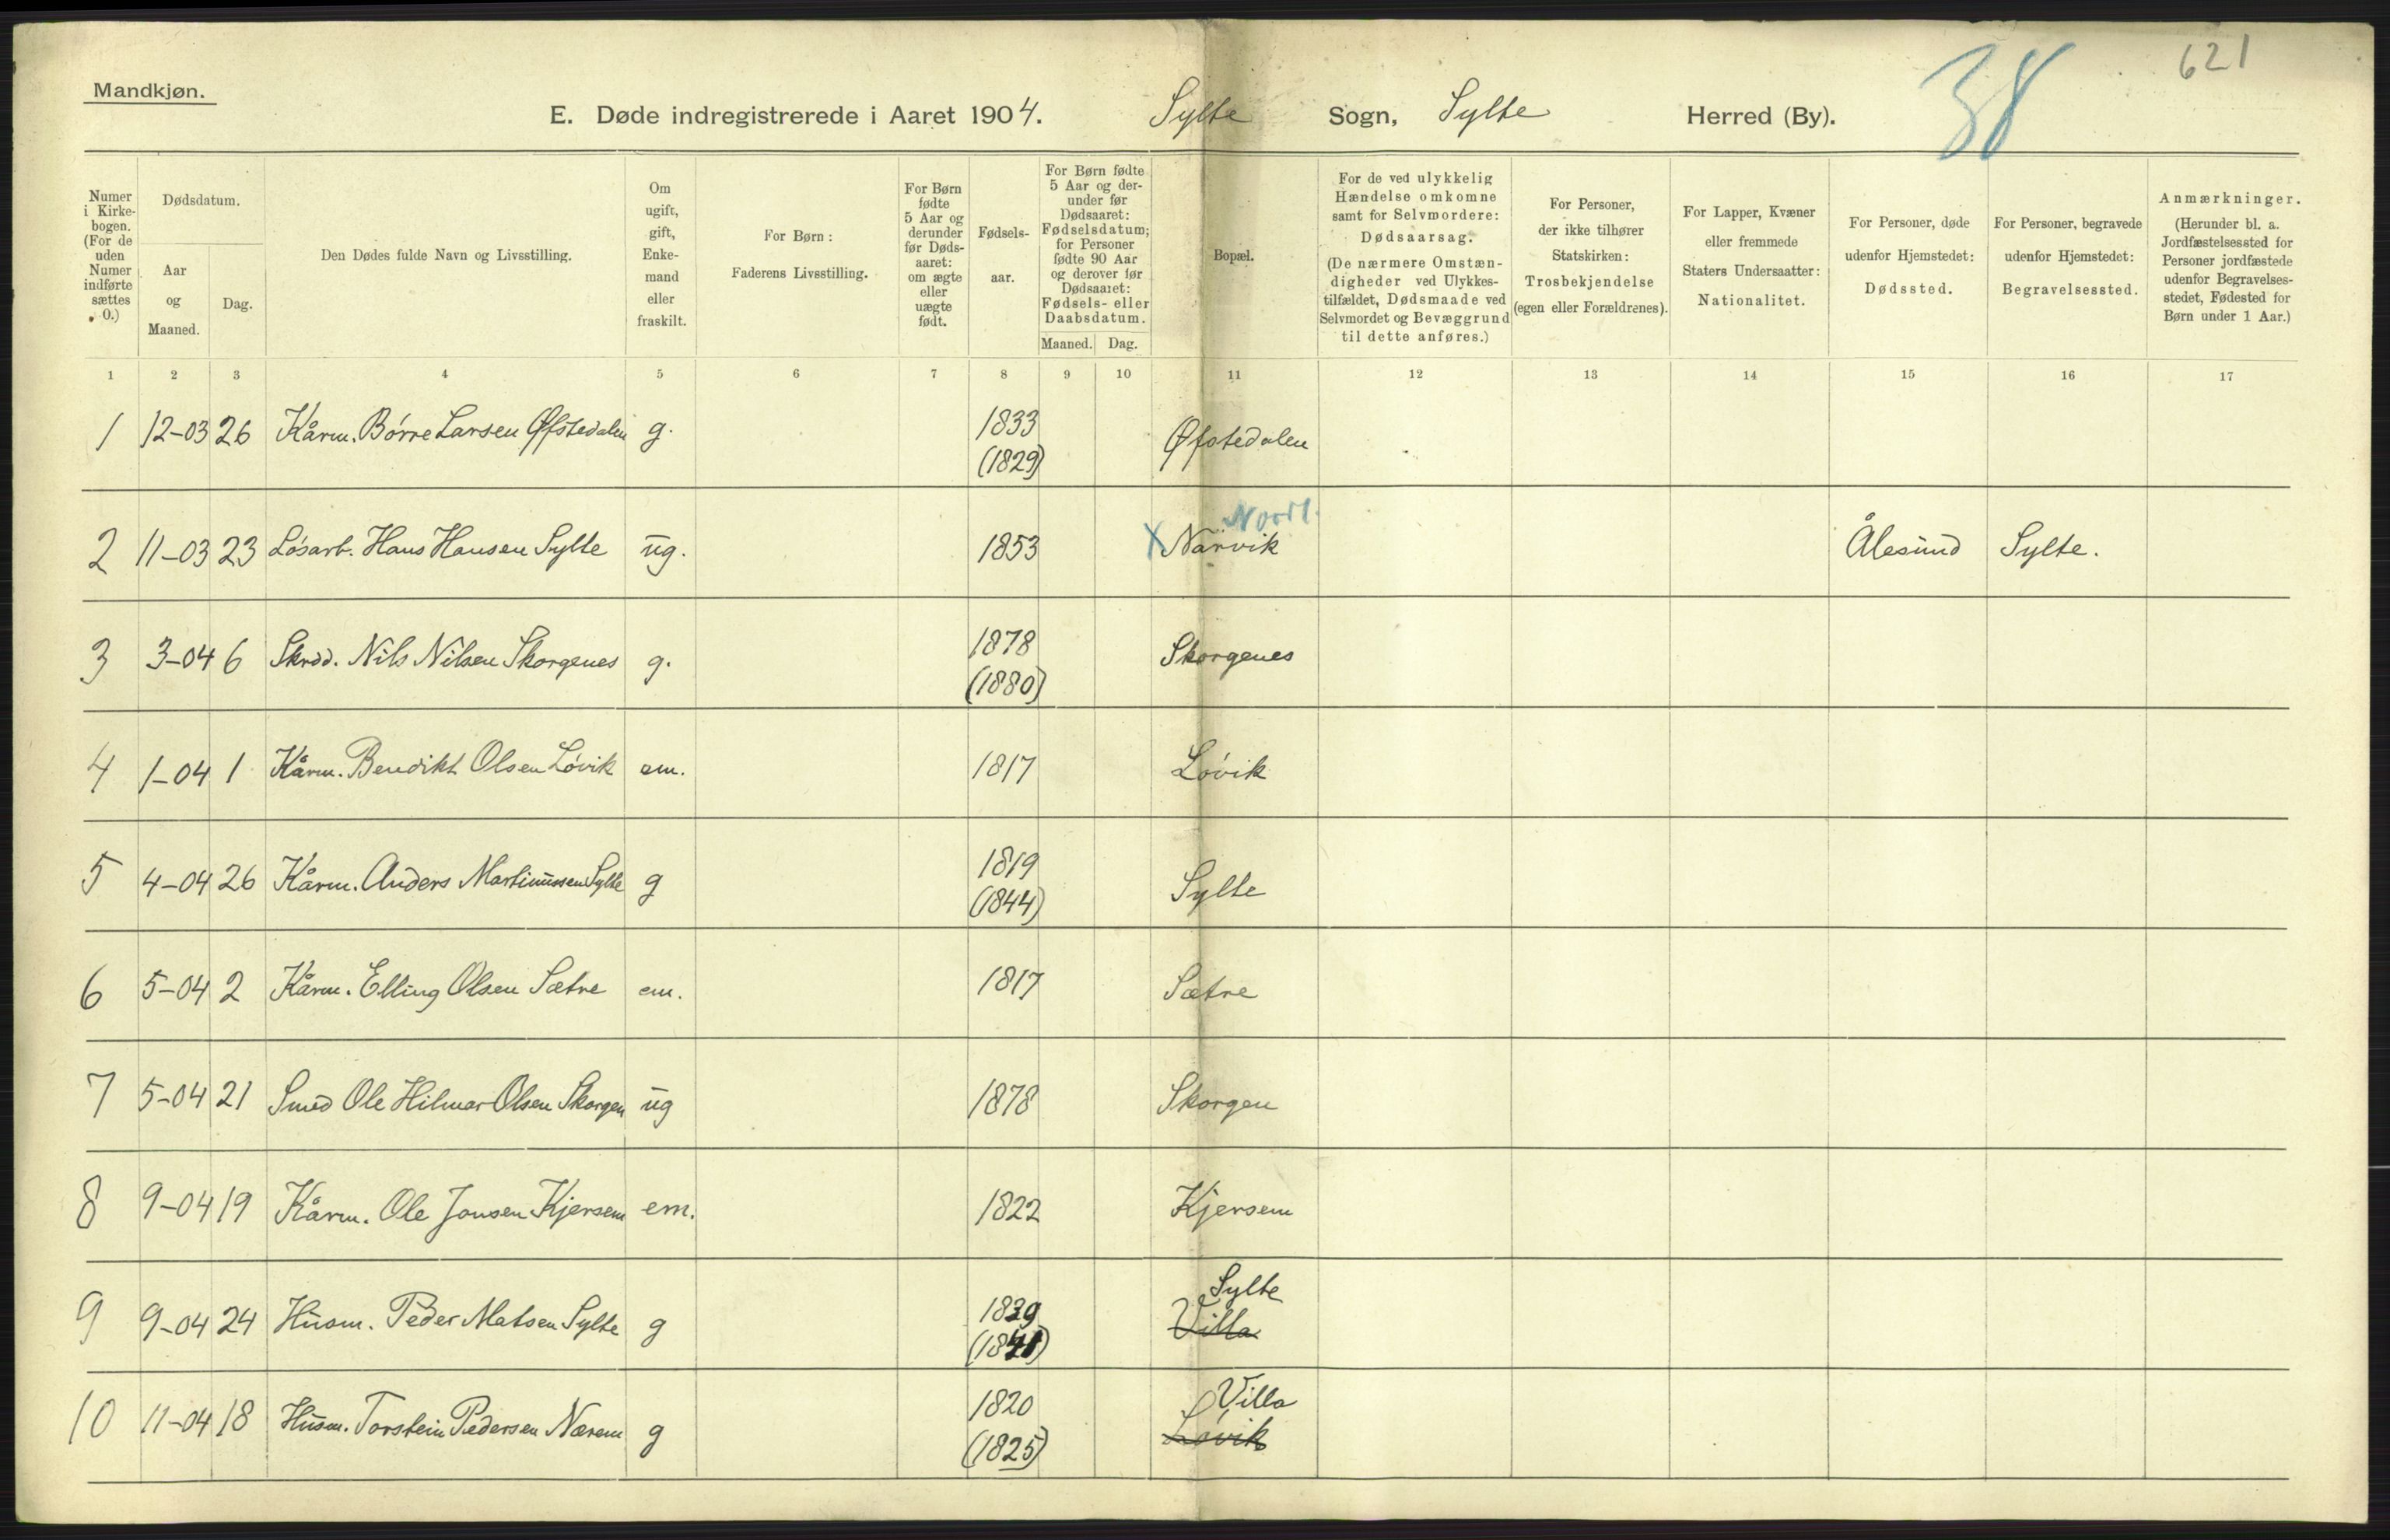 Mandkjøn.
38
621
E. Døde indregistrerede i Aaret 1904. Sylte Sogn, Sylte Herred (By).
Numer i Kirke-bogen. (For de uden Numer indførte sættes 0.)
Dødsdatum.
Aar og Maaned.
Dag.
Den Dødes fulde Navn og Livsstilling.
Om ugift, gift, Enke-mand eller fraskilt.
For Børn: Faderens Livsstilling.
For Børn fødte 5 Aar og derunder før Døds-aaret: om ægte eller uægte født.
Fødsels-aar.
For Børn fødte 5 Aar og der-under før Dødsaaret: Fødselsdatum; for Personer fødte 90 Aar og derover før Dødsaaret: Fødsels- eller Daabsdatum.
Maaned. Dag.
Bopæl.
For de ved ulykkelig Hændelse omkomne samt for Selvmordere: Dødsaarsag. (De nærmere Omstæn-digheder ved Ulykkes-tilfældet, Dødsmaade ved Selvmordet og Bevæggrund til dette anføres.)
For Personer, der ikke tilhører Statskirken: Trosbekjendelse (egen eller Forældrenes).
For Lapper, Kvæner eller fremmede Staters Undersaatter: Nationalitet.
For Personer, døde udenfor Hjemstedet: Dødssted.
For Personer, begravede udenfor Hjemstedet: Begravelsessted.
Anmærkninger. (Herunder bl. a. Jordfæstelsessted for Personer jordfæstede udenfor Begravelses-stedet, Fødested for Børn under 1 Aar.)
1 2 3 4 5 6 7 8 9 10 11 12 13 14 15 16 17
1 12-03 26 Kårm. Børre Larsen Øfstedalen g. 1833 (1829) Øfstedalen
2 11-03 23 Løsarb. Hans Hansen Sylte ug. 1853 X Narvik Nordl. Ålesund Sylte.
3 3-04 6 Skrdd. Nils Nilsen Skorgenes g. 1878 (1880) Skorgenes
4 1-04 1 Kårm. Bendikt Olsen Løvik em. 1817 Løvik
5 4-04 26 Kårm. Anders Martinussen Sylte g 1819 (1844) Sylte
6 5-04 2 Kårm. Elling Olsen Sætre em. 1817 Sætre
7 5-04 21 Smed Ole Hilmar Olsen Skorgen ug 1878 Skorgen
8 9-04 19 Kårm. Ole Jonsen Kjersem em. 1822 Kjersem
9 9-04 24 Husm. Peder Matsen Sylte g 1839 (1841) Sylte Villa
10 11-04 18 Husm. Torstein Pedersen Nærem g 1820 (1825) Villa Løvik